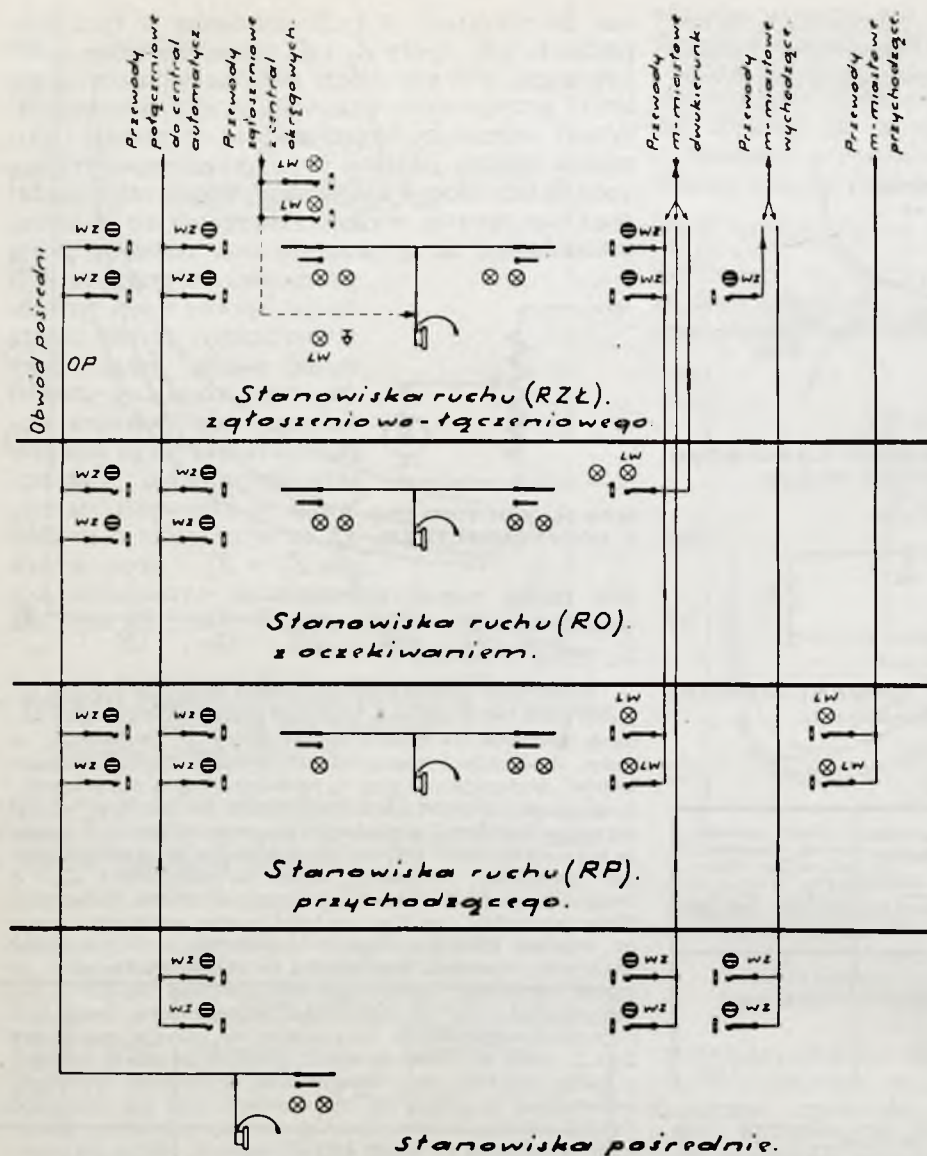 Przewody
połączeniowe
do central
automatycz.
Przewody
zgłoszeniowe
z central
okręgowych.
Przewody
m-miastowe
dwukierunk.
Przewody
m-miastowe
wychodzące.
Przewody
m-miastowe
przychodzące.
LW
LW
WZ
WZ
WZ
WZ
WZ
WZ
WZ
LW
Obwód pośredni
OP
Stanowiska ruchu (RZŁ).
zgłoszeniowo-łączeniowego.
WZ
WZ
LW
WZ
WZ
Stanowiska ruchu (RO).
z oczekiwaniem.
WZ
WZ
LW
LW
WZ
WZ
LW
LW
Stanowiska ruchu (RP).
przychodzącego.
WZ
WZ
WZ
WZ
WZ
WZ
Stanowiska pośrednie.